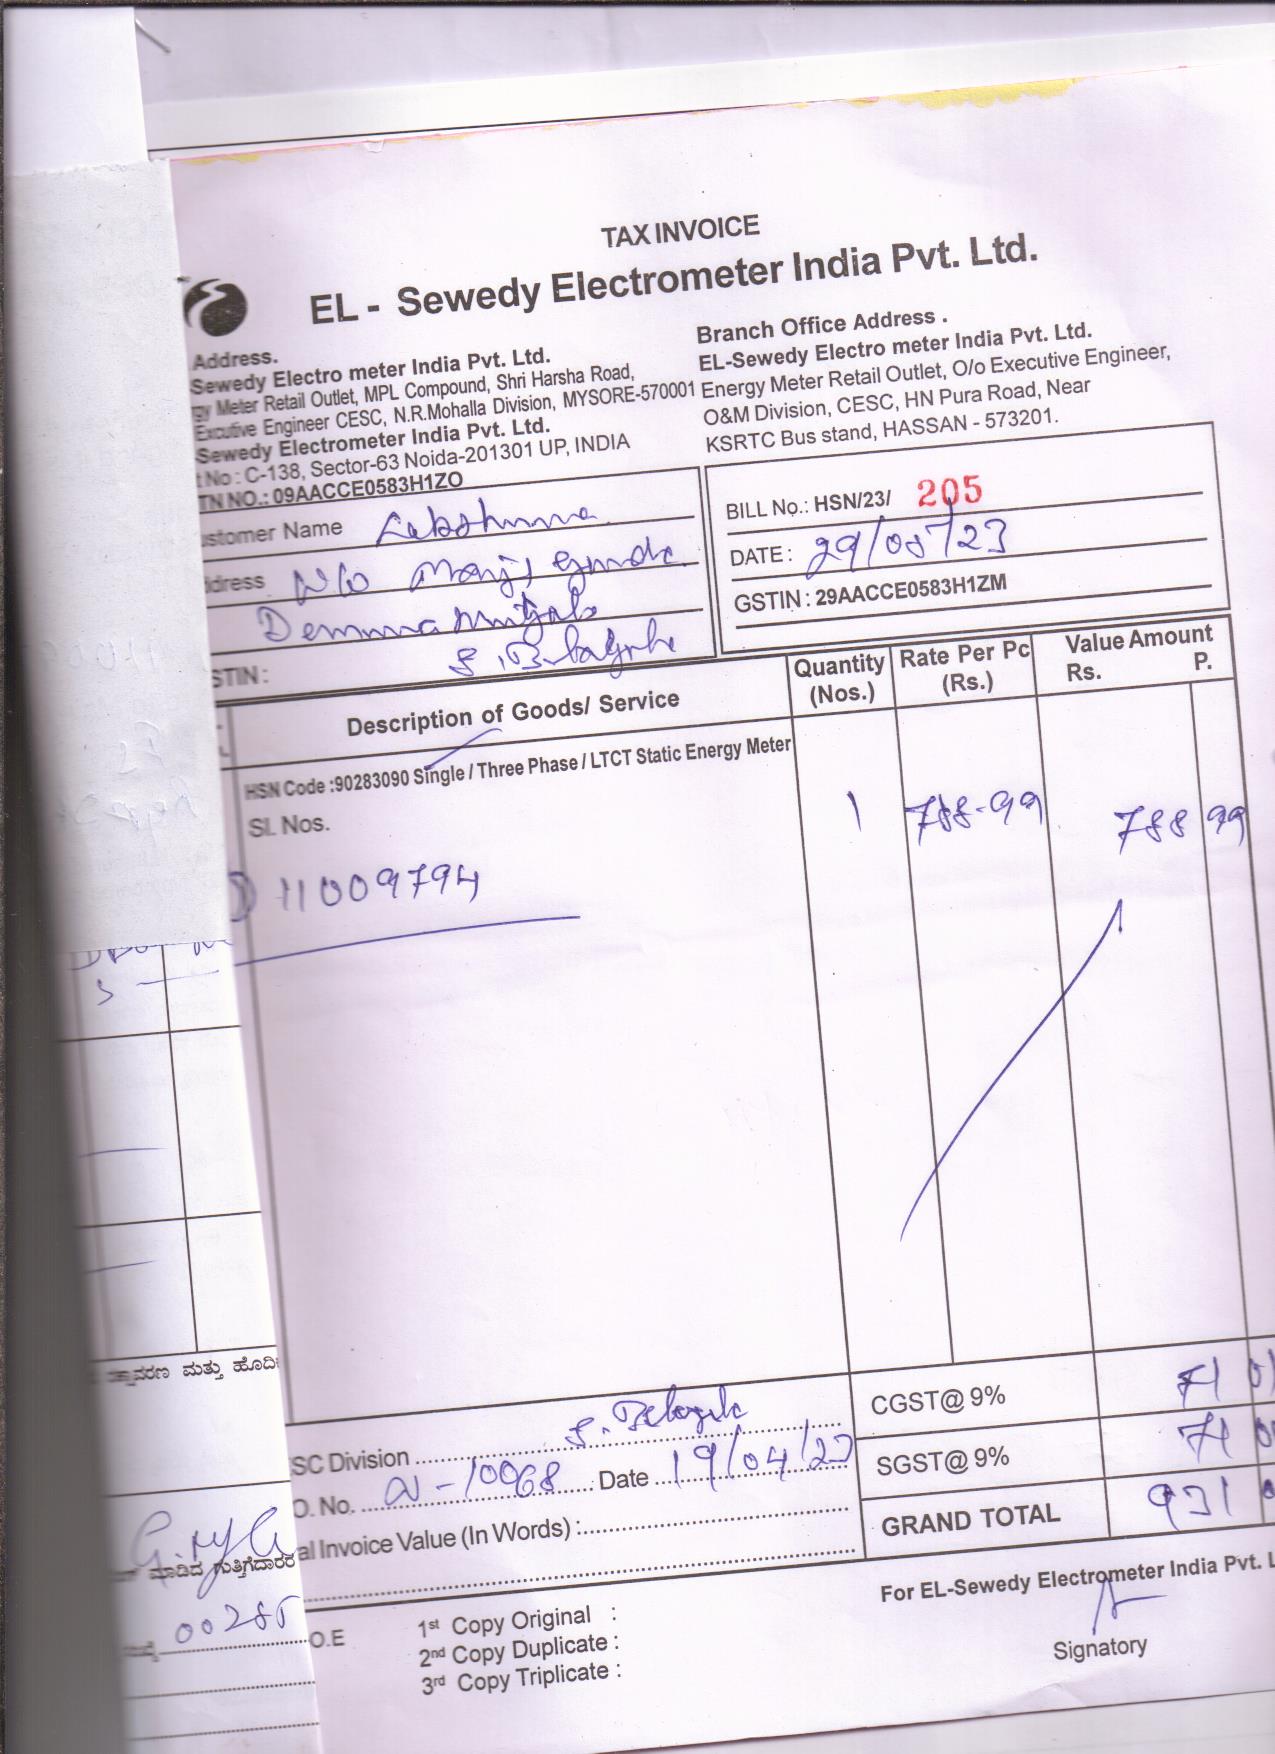 TAX INVOICE
EL - Sewedy Electrometer India Pvt. Ltd.
Address.
Sewedy Electro meter India Pvt. Ltd.
gy Meter Retail Outlet, MPL Compound, Shri Harsha Road,
Excutive Engineer CESC, N.R.Mohalla Division, MYSORE-570001
Sewedy Electrometer India Pvt. Ltd.
t No : C-138, Sector-63 Noida-201301 UP, INDIA
TN NO.: 09AACCE0583H1ZO
Branch Office Address .
EL-Sewedy Electro meter India Pvt. Ltd.
Energy Meter Retail Outlet, O/o Executive Engineer,
O&M Division, CESC, HN Pura Road, Near
KSRTC Bus stand, HASSAN - 573201.
ustomer Name
ddress W/o
STIN :
BILL No.: HSN/23/ 205
DATE : 29/05/23
GSTIN : 29AACCE0583H1ZM
Description of Goods/ Service
Quantity (Nos.)
Rate Per Pc (Rs.)
Value Amount
Rs. P.
HSN Code :90283090 Single / Three Phase / LTCT Static Energy Meter
Sl. Nos.
1 788-99 788 99
11009794
CGST@ 9% 71 01
SGST@ 9% 71
GRAND TOTAL 931
SC Division
O. No. Date 19/04/23
al Invoice Value (In Words) :
For EL-Sewedy Electrometer India Pvt. L
Signatory
O.E
1st Copy Original :
2nd Copy Duplicate :
3rd Copy Triplicate :
ಮತ್ತು ಹೊದಿ
ಮಾಡಿದ ಗುತ್ತಿಗೆದಾರರ